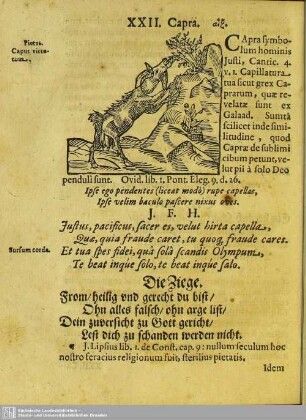 XXII. Capra. αἴξ.
Pietas.
Caput victu-
tum.
CApra symbo-
lum hominis
Justi, Cantic. 4.
v. 1. Capillatura
tua sicut grex Ca-
prarum, quæ re-
velatæ sunt ex
Galaad. Sumtâ
scilicet inde simi-
litudine, quod
Capræ de sublimi
cibum petunt, ve-
lur pii à solo Deo
penduli sunt. Ovid. lib. 1. Pont. Eleg. 9. d. 26.
Ipse ego pendentes (liceat modò) rupe capellas,
Ipse velim baculo pascere nixus oves.
J. F. H.
Justus, pacificus, sacer es, velut hirta capella,
Quæ, quia fraude caret, tu quoq; fraude cares.
Sursum corda.
Et tua spes fidei, quâ solâ scandis Olympum,
Te beat inque solo, te beat inque salo.
Die Ziege.
From/ heilig vnd gerecht du bist/
Ohn alles falsch/ ohn arge list/
Dein zuversicht zu Gott gericht/
Lest dich zu schanden werden nicht.
J. Lipsius lib. 1. de Const. cap. 9: nullum seculum hoc
nostro feracius religionum fuit, sterilius pietatis.
Idem
Sächsische Landesbibliothek -
Staats- und Universitätsbibliothek Dresden